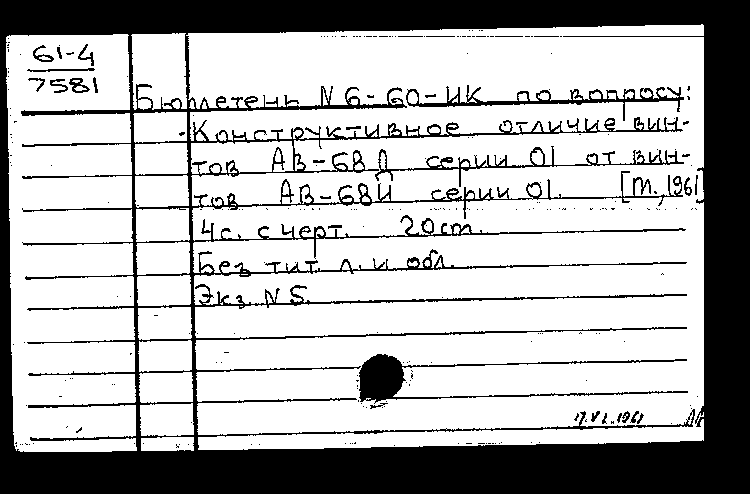 61-4
7581
Бюллетень N 6-60-ИК по вопросу:
Конструктивное отличие вин-
тов АВ-68Д серии 01 от вин-
тов АВ-68И серии 01. [М., 1961]
4с. с черт. 20см.
Без тит. л. и обл.
Экз. N 5.
17.VI.1961